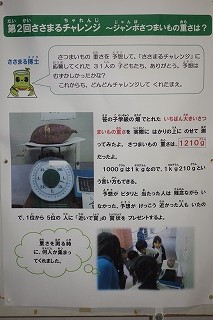 第2回ささまるチャレンジ ～ジャンボさつまいもの重さは?
ささまる博士
さつまいもの 重さを 予想して、「ささまるチャレンジ」に
応募してくれた 31人の 子どもたち、ありがとう。予想は
むずかしかったかな?
これからも、どんどんチャレンジして くれたまえ。
笹の子学級の 畑で とれた いちばん大きいさつ
まいもの 重さを 実際に はかりの上に のせて 測っ
てみたよ。さつまいもの 重さは、1210g
だったよ。
1000gは1kgなので、1kg210gとい
う言い方もできる。
予想が ピタリと 当たった人は 残念ながら い
なかった。予想が けっこう 近かった人も いたの
で、1位から 5位の 人に「近いで賞」の 賞状を プレゼントするよ。
重さを測る時
に、何人か集まっ
てくれました。